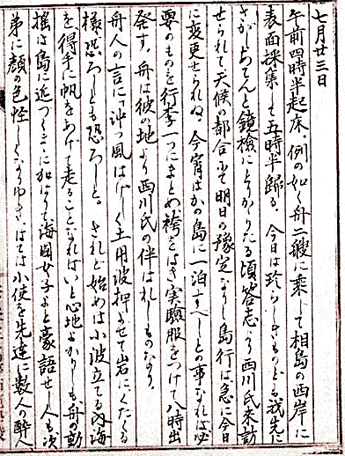 七月廿三日
午前四時半起床、例の如く舟二艘に乘して相島の西岸に
表面採集して五時半歸る、今日は珍らしきものども我先に
さがしあてんと鏡檢にとりかゝりたる頃答志より西川氏来訪
せられて天候の都合にて明日の豫定なりし島行は急に今日
に変更せられぬ、今宵はかの島に一泊すべしとの事なれば必
要のものを行李一つにまとめ袴をはき実驗服をつけて八時出
発す、舟は彼の地より西川氏の伴はれしものなり、
舟人の言に「沖つ風はげしく土用波押よせて岩にくだくる
様恐ろしとも恐ろしと。されど始めは小波立てる内海
を得手に帆をあげて走ることなれはいと心地よかりしも舟の動
搖は島に近づくまゝに加はりて海國女子よと豪語せし人も次
第に顔の色怪しくなりゆき、はては小使を先達に数人の醉人